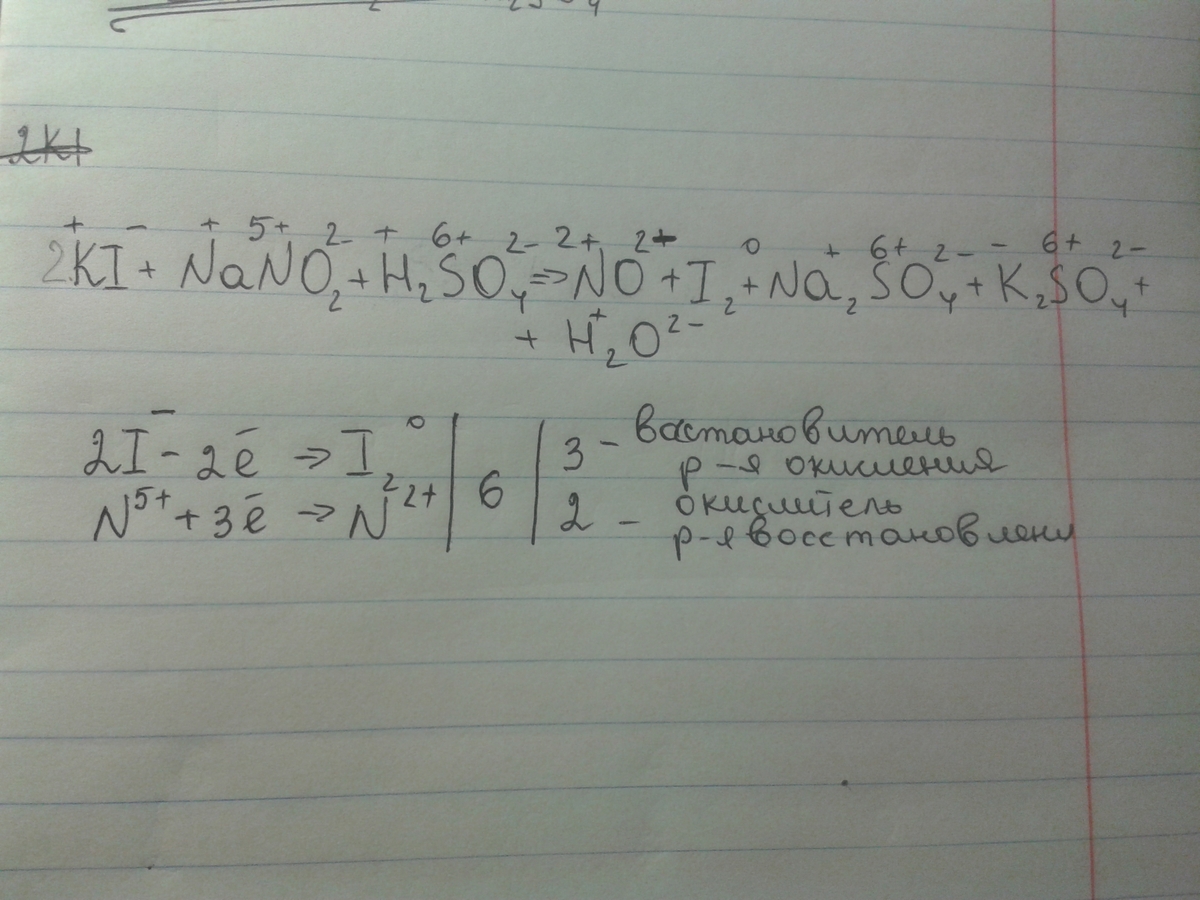 2KI
2K⁺I⁻ + Na⁺N⁵⁺O₂²⁻ + H₂⁺S⁶⁺O₄²⁻ => N²⁺O²⁻ + I₂⁰ + Na₂⁺S⁶⁺O₄²⁻ + K₂⁻S⁶⁺O₄²⁻ +
+ H₂⁺O²⁻
2I⁻ - 2ē → I₂⁰ | 6 | 3 - востановитель
р-я окисления
N⁵⁺ + 3ē → N²⁺ | 2 - окислитель
р-я восстановлени